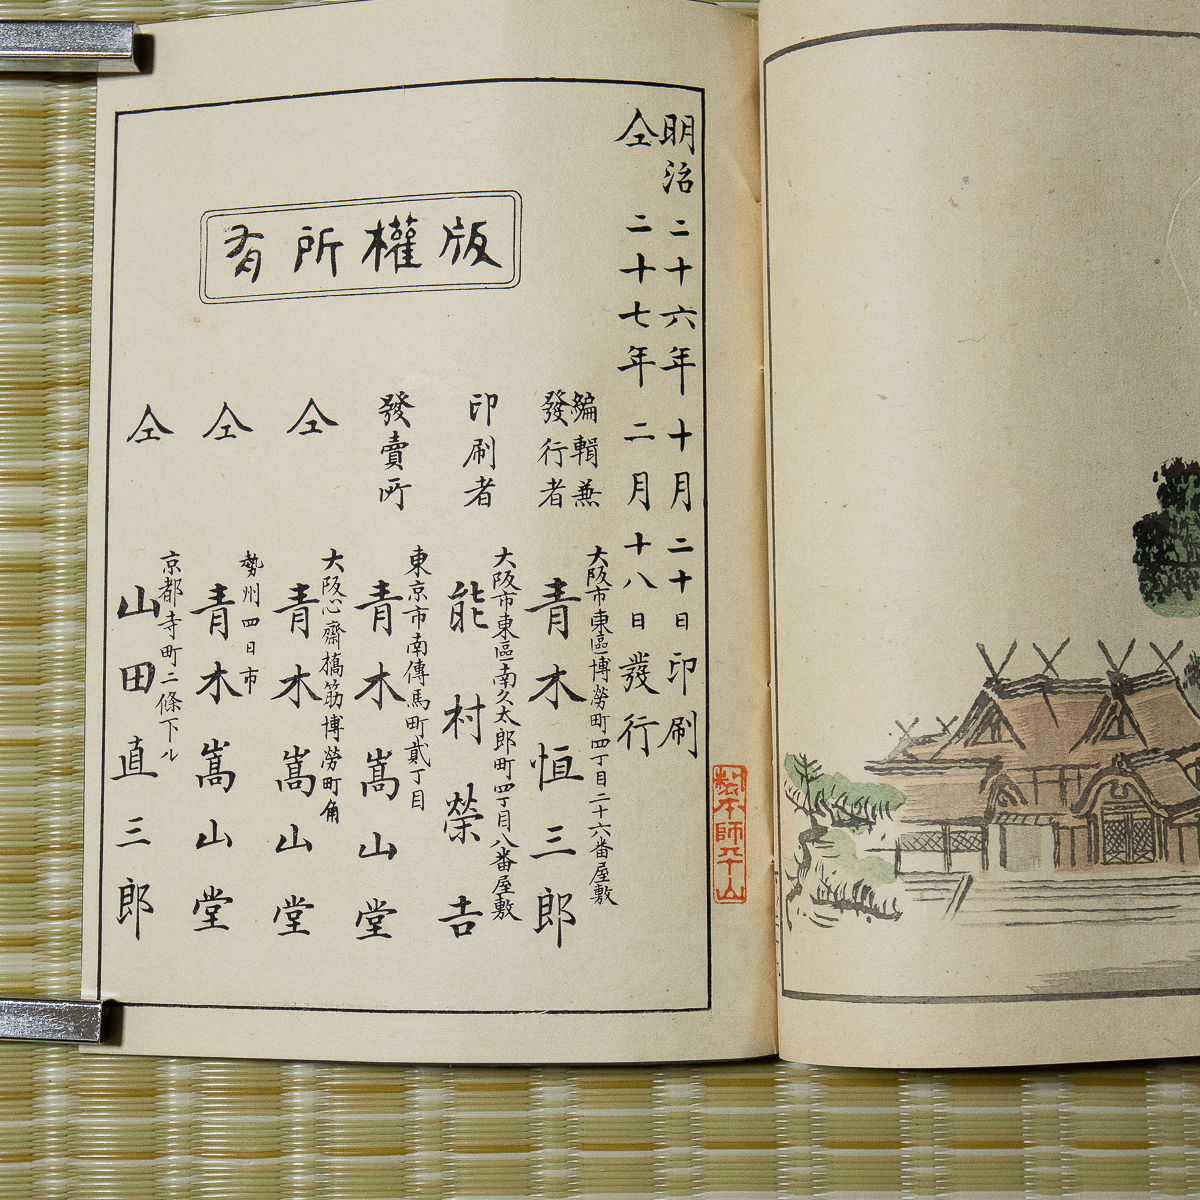 明治二十六年十月二十日印刷
仝二十七年二月十八日發行
版權所有
編輯兼
發行者
大阪市東區博勞町四丁目二十六番屋敷
青木恒三郎
印刷者
大阪市東區南久太郎町四丁目八番屋敷
能村榮吉
發賣所
東京市南傳馬町貳丁目
青木嵩山堂
仝
大阪心齋橋筋博勞町角
青木嵩山堂
仝
勢州四日市
青木嵩山堂
仝
京都寺町二條下ル
山田直三郎
製本師平山